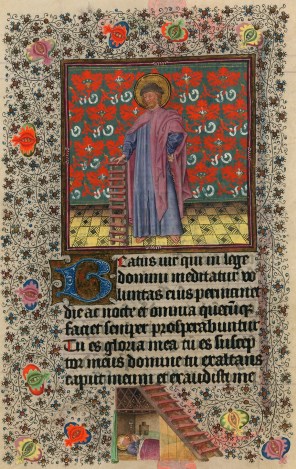 Beatus uir qui in lege
domini meditatur vo
luntas eius permanet
die ac nocte et omnia quecūqꝫ
faciet semper prosperabuntur
Tu es gloria mea tu es suscep
tor meus domine tu exaltans
caput meum et exaudisti me